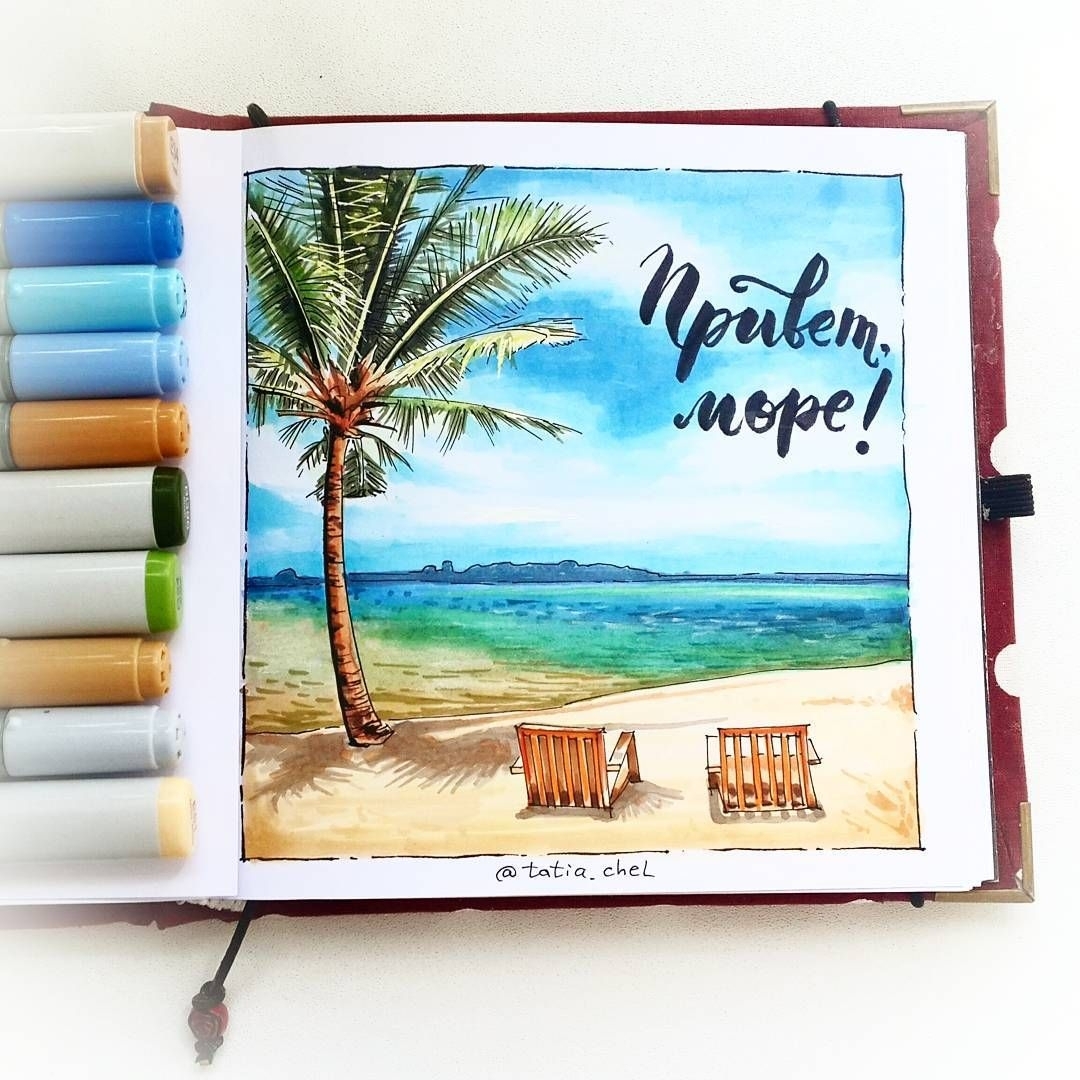 Привет,
море!
@tatia_cheL